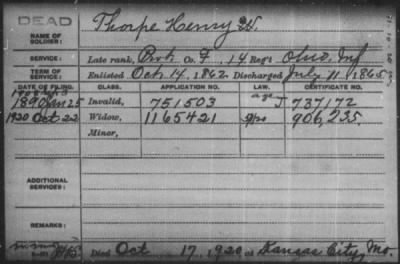 DEAD
NAME OF SOLDIER:
Thorpe Henry W.
SERVICE:
Late rank, Prvt. Co. F, 14 Reg't Ohio Inf
TERM OF SERVICE:
Enlisted Oct 14, 1862, Discharged July 11 1865
DATE OF FILING. CLASS. APPLICATION NO. LAW. CERTIFICATE NO.
1890 Jan 25 Invalid, 751503 J 737172
1920 Oct 22 Widow, 1165421 906,235.
Minor,
ADDITIONAL SERVICES:
REMARKS:
Died Oct 17, 1920, at Kansas City, Mo.